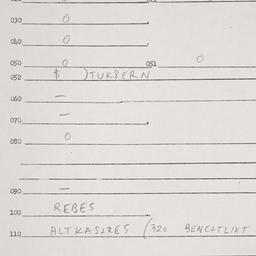 030 0
040 0
050 0 051 0
052 $ )TUKPERN
060 —
070 —
080 0
090 —
100 REBES
110 ALTKASTRES /320 BENCHTLIXT